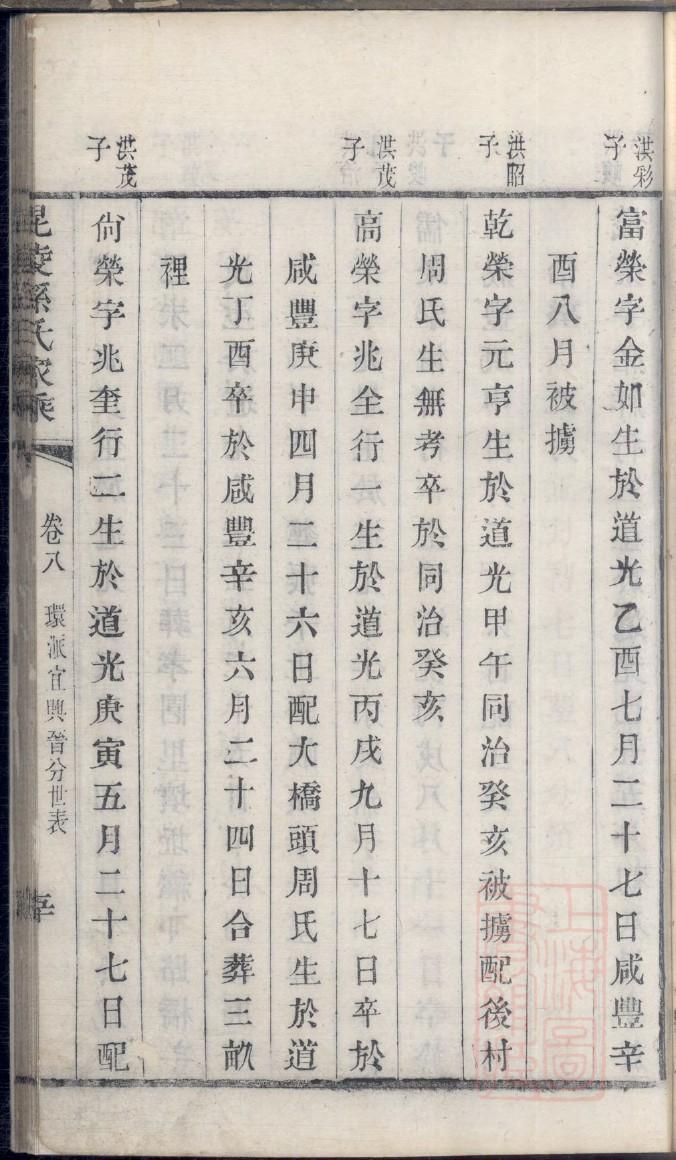 洪彩子
富榮字金如生於道光乙酉七月二十七日咸豐辛
酉八月被擄
洪昭子
乾榮字元亨生於道光甲午同治癸亥被擄配後村
周氏生無考卒於同治癸亥
洪茂子
高榮字兆全行一生於道光丙戌九月十七日卒於
咸豐庚申四月二十六日配大橋頭周氏生於道
光丁酉卒於咸豐辛亥六月二十四日合葬三畝
裡
洪茂子
尙榮字兆奎行二生於道光庚寅五月二十七日配
毘陵孫氏家乘
卷八
環派宜興晉分世表
上海圖書館藏